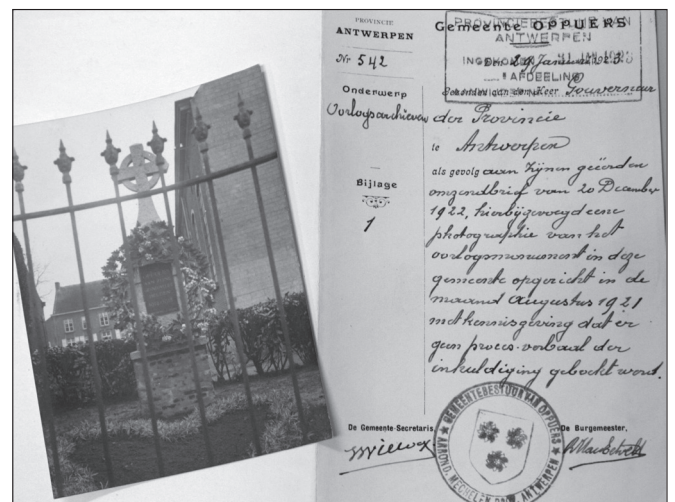 PROVINCIE
ANTWERPEN
Nr 542
Onderwerp
Oorlogsarchieven
Bijlage
1
Gemeente OPPUERS
PROVINCIEBESTUUR VAN
ANTWERPEN
INGEKOMEN 31 JAN 1923
AFDEELING
Den 29 Januari 1923
aan den Heer Gouverneur
der Provincie
te Antwerpen
als gevolg aan Zijnen geëerden
omzendbrief van 20 December
1922, hierbijgevoegd eene
photographie van het
oorlogsmonument in deze
gemeente opgericht in de
maand Augustus 1921
met kennisgeving dat er
geen proces-verbaal der
inhuldiging gebockt werd.
De Gemeente-Secretaris,
De Burgemeester,
GEMEENTEBESTUUR VAN OPPUERS
ARROND. MECHELEN PROV. ANTWERPEN